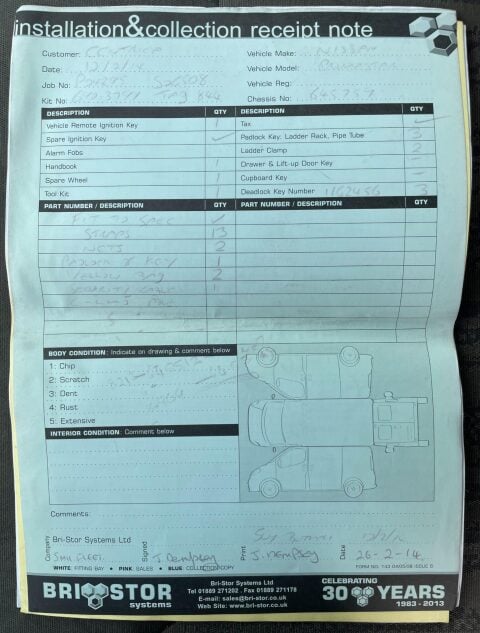 installation&collection receipt note
Customer: CENTRICA Vehicle Make: NISSAN
Date: 12/2/14 Vehicle Model:
Job No: Vehicle Reg:
Kit No: Chassis No: 645737
DESCRIPTION QTY DESCRIPTION QTY
Vehicle Remote Ignition Key 1 Tax
Spare Ignition Key Padlock Key: Ladder Rack, Pipe Tube
Alarm Fobs Ladder Clamp 2
Handbook 1 Drawer & Lift-up Door Key
Spare Wheel 1 Cupboard Key
Tool Kit 1 Deadlock Key Number 1162456 3
PART NUMBER / DESCRIPTION QTY PART NUMBER / DESCRIPTION QTY
FIT TO SPEC
STRAPS 13
NETS 2
& KEY 1
YELLOW BAG 2
SECURITY
BODY CONDITION: Indicate on drawing & comment below
1: Chip
2: Scratch
3: Dent
4: Rust
5: Extensive
INTERIOR CONDITION: Comment below
Comments:
Bri-Stor Systems Ltd
Company SMH FLEET Signed J. Dempsey Print J. Dempsey Date 26-2-14
WHITE: FITTING BAY • PINK: SALES • BLUE: COLLECTION COPY FORM NO. 143 ISSUE 6
BRI STOR systems
Bri-Stor Systems Ltd
Tel 01889 271202 . Fax 01889 271178
E-mail: sales@bri-stor.co.uk
Web Site: www.bri-stor.co.uk
CELEBRATING
30 YEARS
1983 - 2013